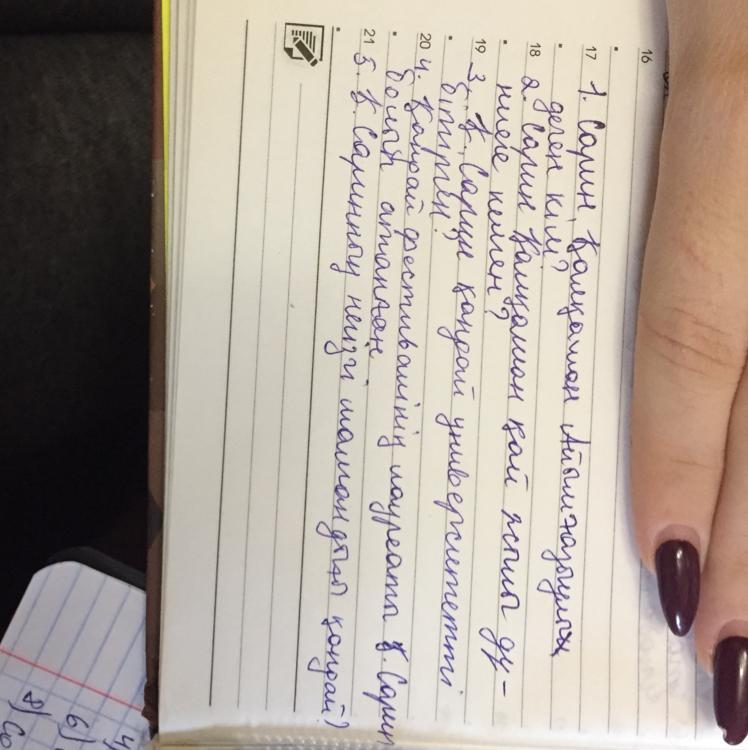 16
17 1. Сарин Қалқаман Айылғазыұлы
деген кім?
18 2. Сарин Қалқаман қай жылы ду-
ниеге келген?
19 3. Қ. Сарин қандай университетті
бітірген?
20 4. Қандай фестивалінің лауреаты Қ. Сарин
болып аталған
21 5. Қ. Сариннің негізгі мамандығы қандай?
6)
8) Со